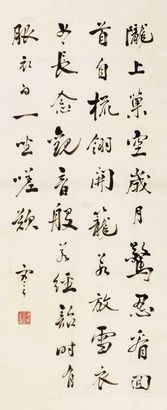 隴上巢空歲月驚忍看回
首自梳翎開籠若放雪衣
女長念觀音般若經韶時有
服衣白一坐嗟歎